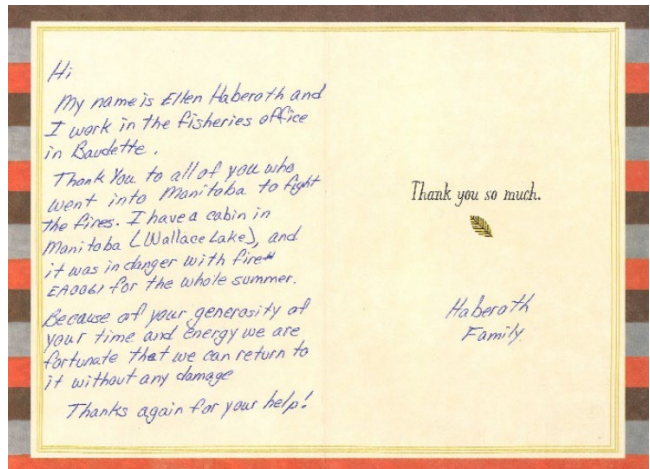 Hi
My name is Ellen Haberoth and
I work in the fisheries office
in Baudette.
Thank You to all of you who
went into Manitoba to fight
the fires. I have a cabin in
Manitoba (Wallace Lake), and
it was in danger with fire#
EA0061 for the whole summer.
Because of your generosity of
your time and energy we are
fortunate that we can return to
it without any damage
Thanks again for your help!
Thank you so much.
Haberoth
Family